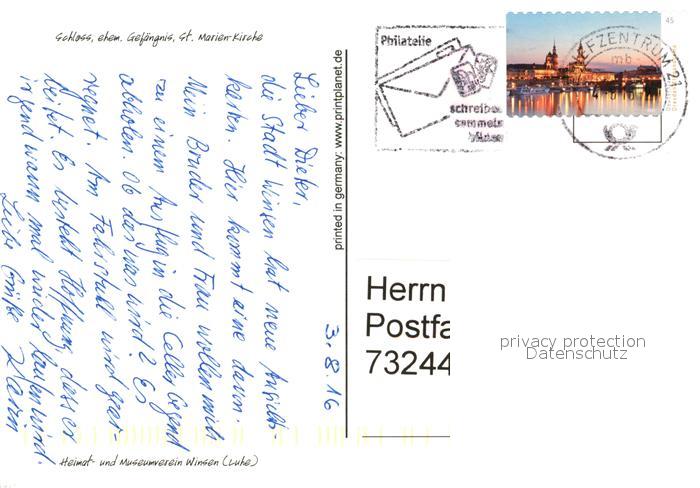 Schloss, ehem. Gefängnis, St. Marien-Kirche
3.8.16
Lieber Dieter,
die Stadt Winsen hat neue Ansichts-
karten. Hier kommt eine davon.
Mein Bruder und Frau wollen mich
zu einem Ausflug in die Celler Gegend
abholen. Ob das was wird? Es
regnet. Am Fahrstuhl wird gear-
beitet. Es besteht Hoffnung, dass er
irgendwann mal wieder laufen wird.
Liebe Grüße Karin
Heimat- und Museumverein Winsen (Luhe)
printed in germany: www.printplanet.de
Philatelie
schreiben
sammeln
BRIEFZENTRUM 21
mb
45
Herrn
Postfa
73244
privacy protection
Datenschutz